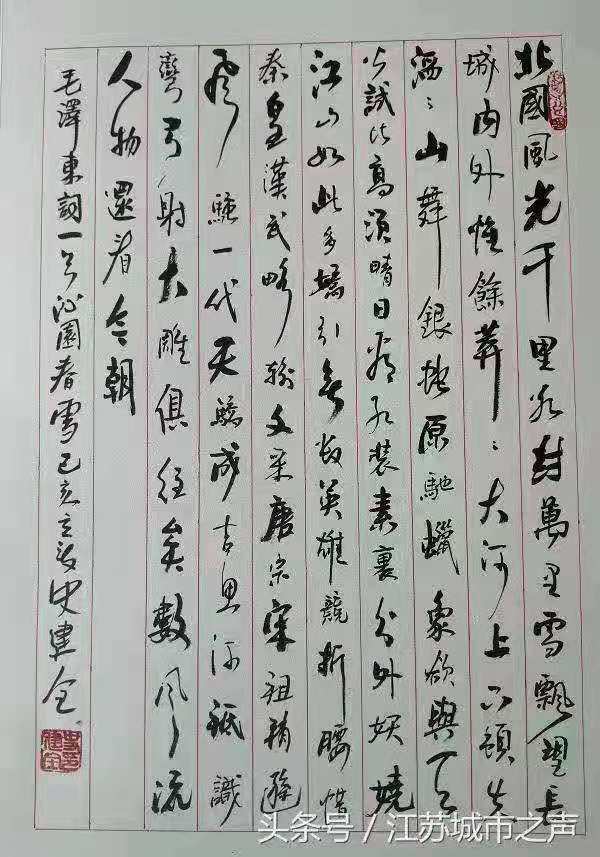 北國風光千里冰封萬里雪飄望長
城内外惟餘莽〻大河上下頓失
滔〻山舞銀蛇原馳蠟象欲與天
公試比高須晴日看紅装素裹分外妖嬈
江山如此多嬌引無數英雄競折腰惜
秦皇漢武略輸文采唐宗宋祖稍遜
風騷一代天驕成吉思汗祗識
彎弓射大雕俱往矣數風流
人物還看今朝
毛澤東詞一首沁園春雪己亥立夏史建全
头条号 / 江苏城市之声